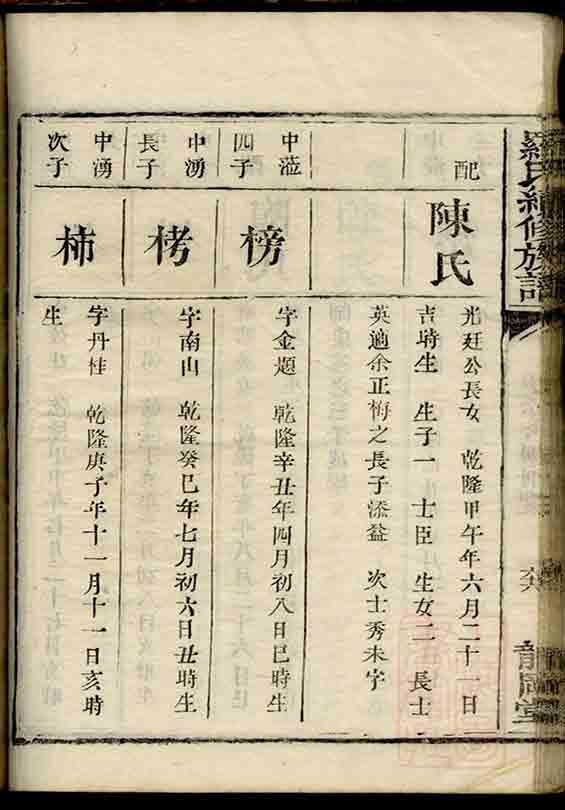 羅氏續修族譜
龍岡堂
配
陳氏
光廷公長女 乾隆甲午年六月二十一日
吉時生 生子一 士臣 生女二 長士
英適余正梅之長子添益 次士秀未字
中蒞
四子
榜
字金題 乾隆辛丑年四月初八日巳時生
中湧
長子
栲
字南山 乾隆癸巳年七月初六日丑時生
中湧
次子
柿
字丹桂 乾隆庚子年十一月十一日亥時
生